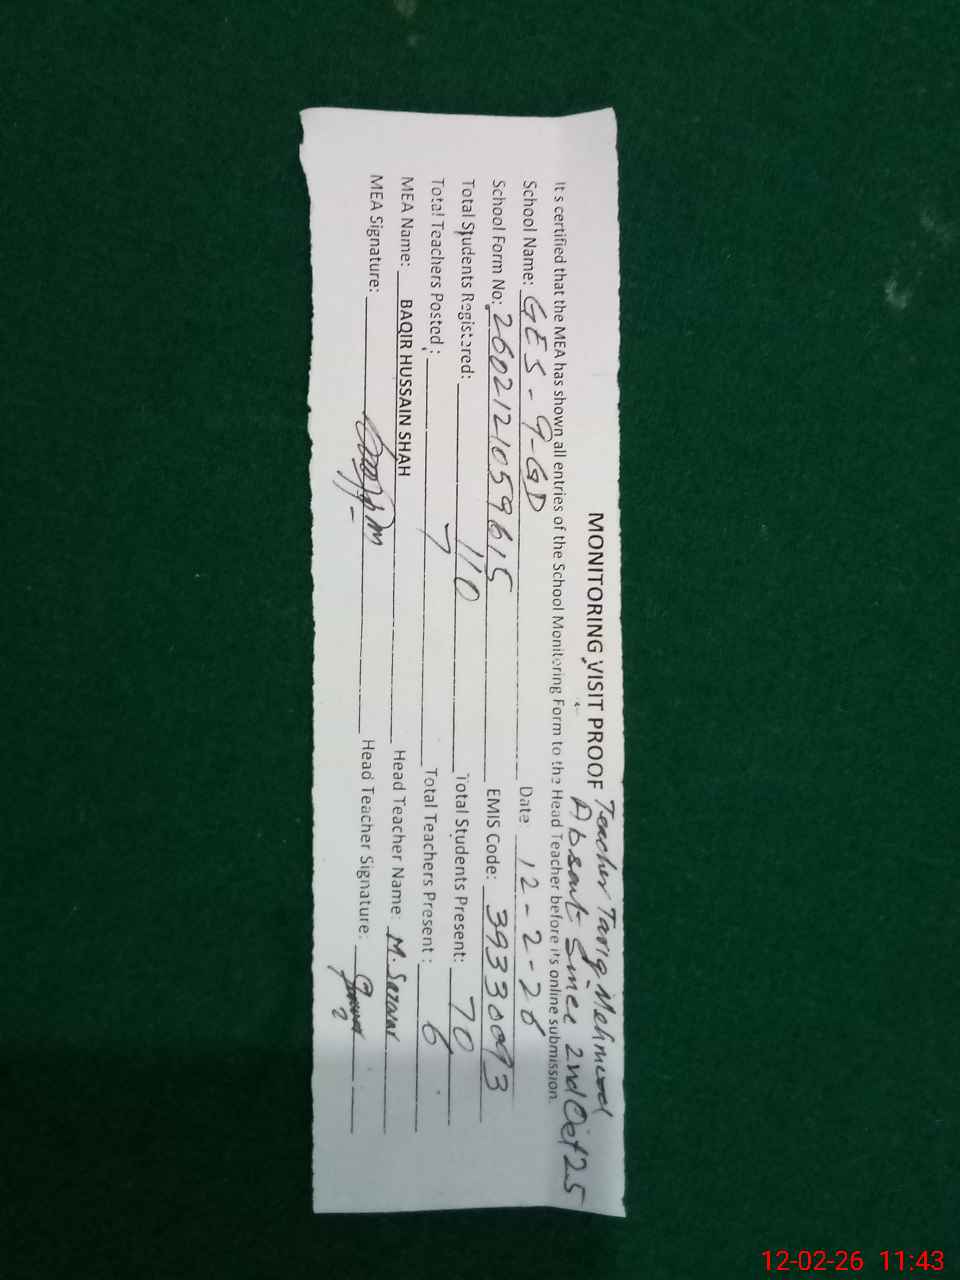 MONITORING VISIT PROOF Teacher Tariq Mehmood
Absent Since 2nd Oct 25
It s certified that the MEA has shown all entries of the School Monitoring Form to the Head Teacher before it's online submission.
School Name: GES-9-GD Date: 12-2-26
School Form No: 2602121059615 EMIS Code: 39330093
Total Students Registered: 110 Total Students Present: 70
Total Teachers Posted: 7 Total Teachers Present: 6
MEA Name: BAQIR HUSSAIN SHAH Head Teacher Name: M. Sarwar
MEA Signature: Head Teacher Signature:
12-02-26 11:43